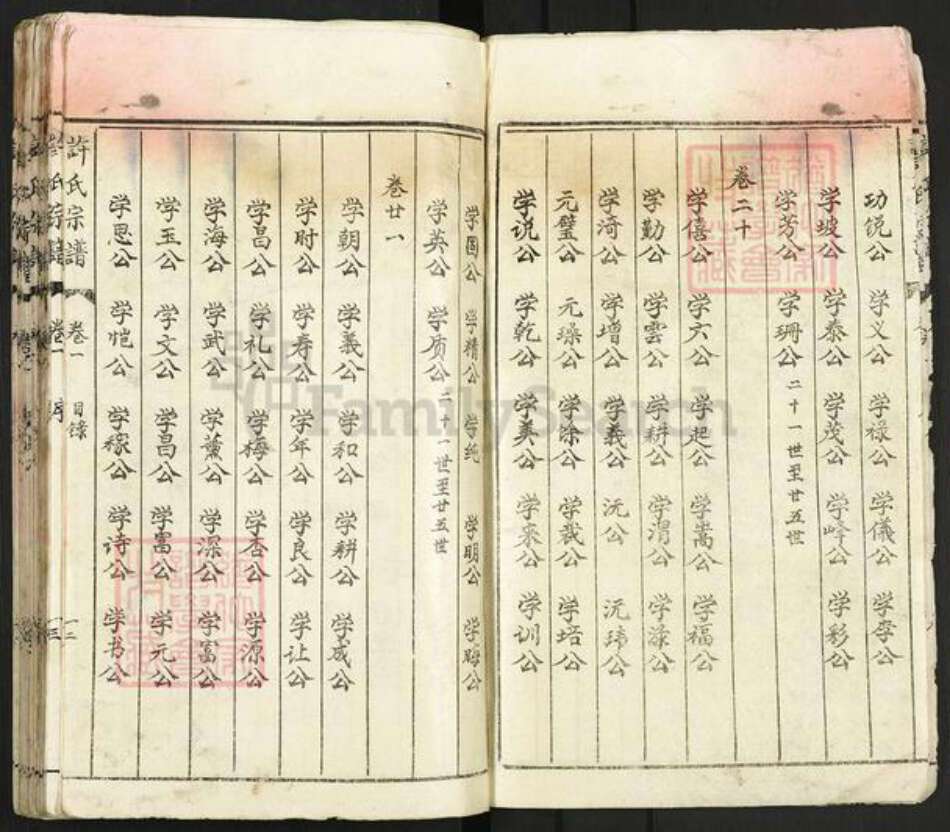 功锐公 学义公 学禄公 学儀公 学李公
学坡公 学泰公 学茂公 学峰公 学彩公
学芳公 学珊公 二十一世至廿五世
卷二十
学僖公 学六公 学起公 学嵩公 学福公
学勤公 学雲公 学耕公 学渭公 学渌公
学漪公 学增公 学義公 沅公 沅玮公
元璧公 元璪公 学徐公 学裁公 学培公
学说公 学乾公 学美公 学来公 学训公
学圆公 学精公 学纯 学明公 学海公
学英公 学质公 二十一世至廿五世
卷廿一
学朝公 学義公 学和公 学耕公 学成公
学时公 学寿公 学年公 学良公 学让公
学昌公 学礼公 学梅公 学杏公 学源公
学海公 学武公 学薰公 学深公 学富公
学玉公 学文公 学昌公 学富公 学元公
学思公 学恺公 学稼公 学诗公 学书公
許氏宗譜 卷一 目錄 十二
卷一 序
FamilySearch